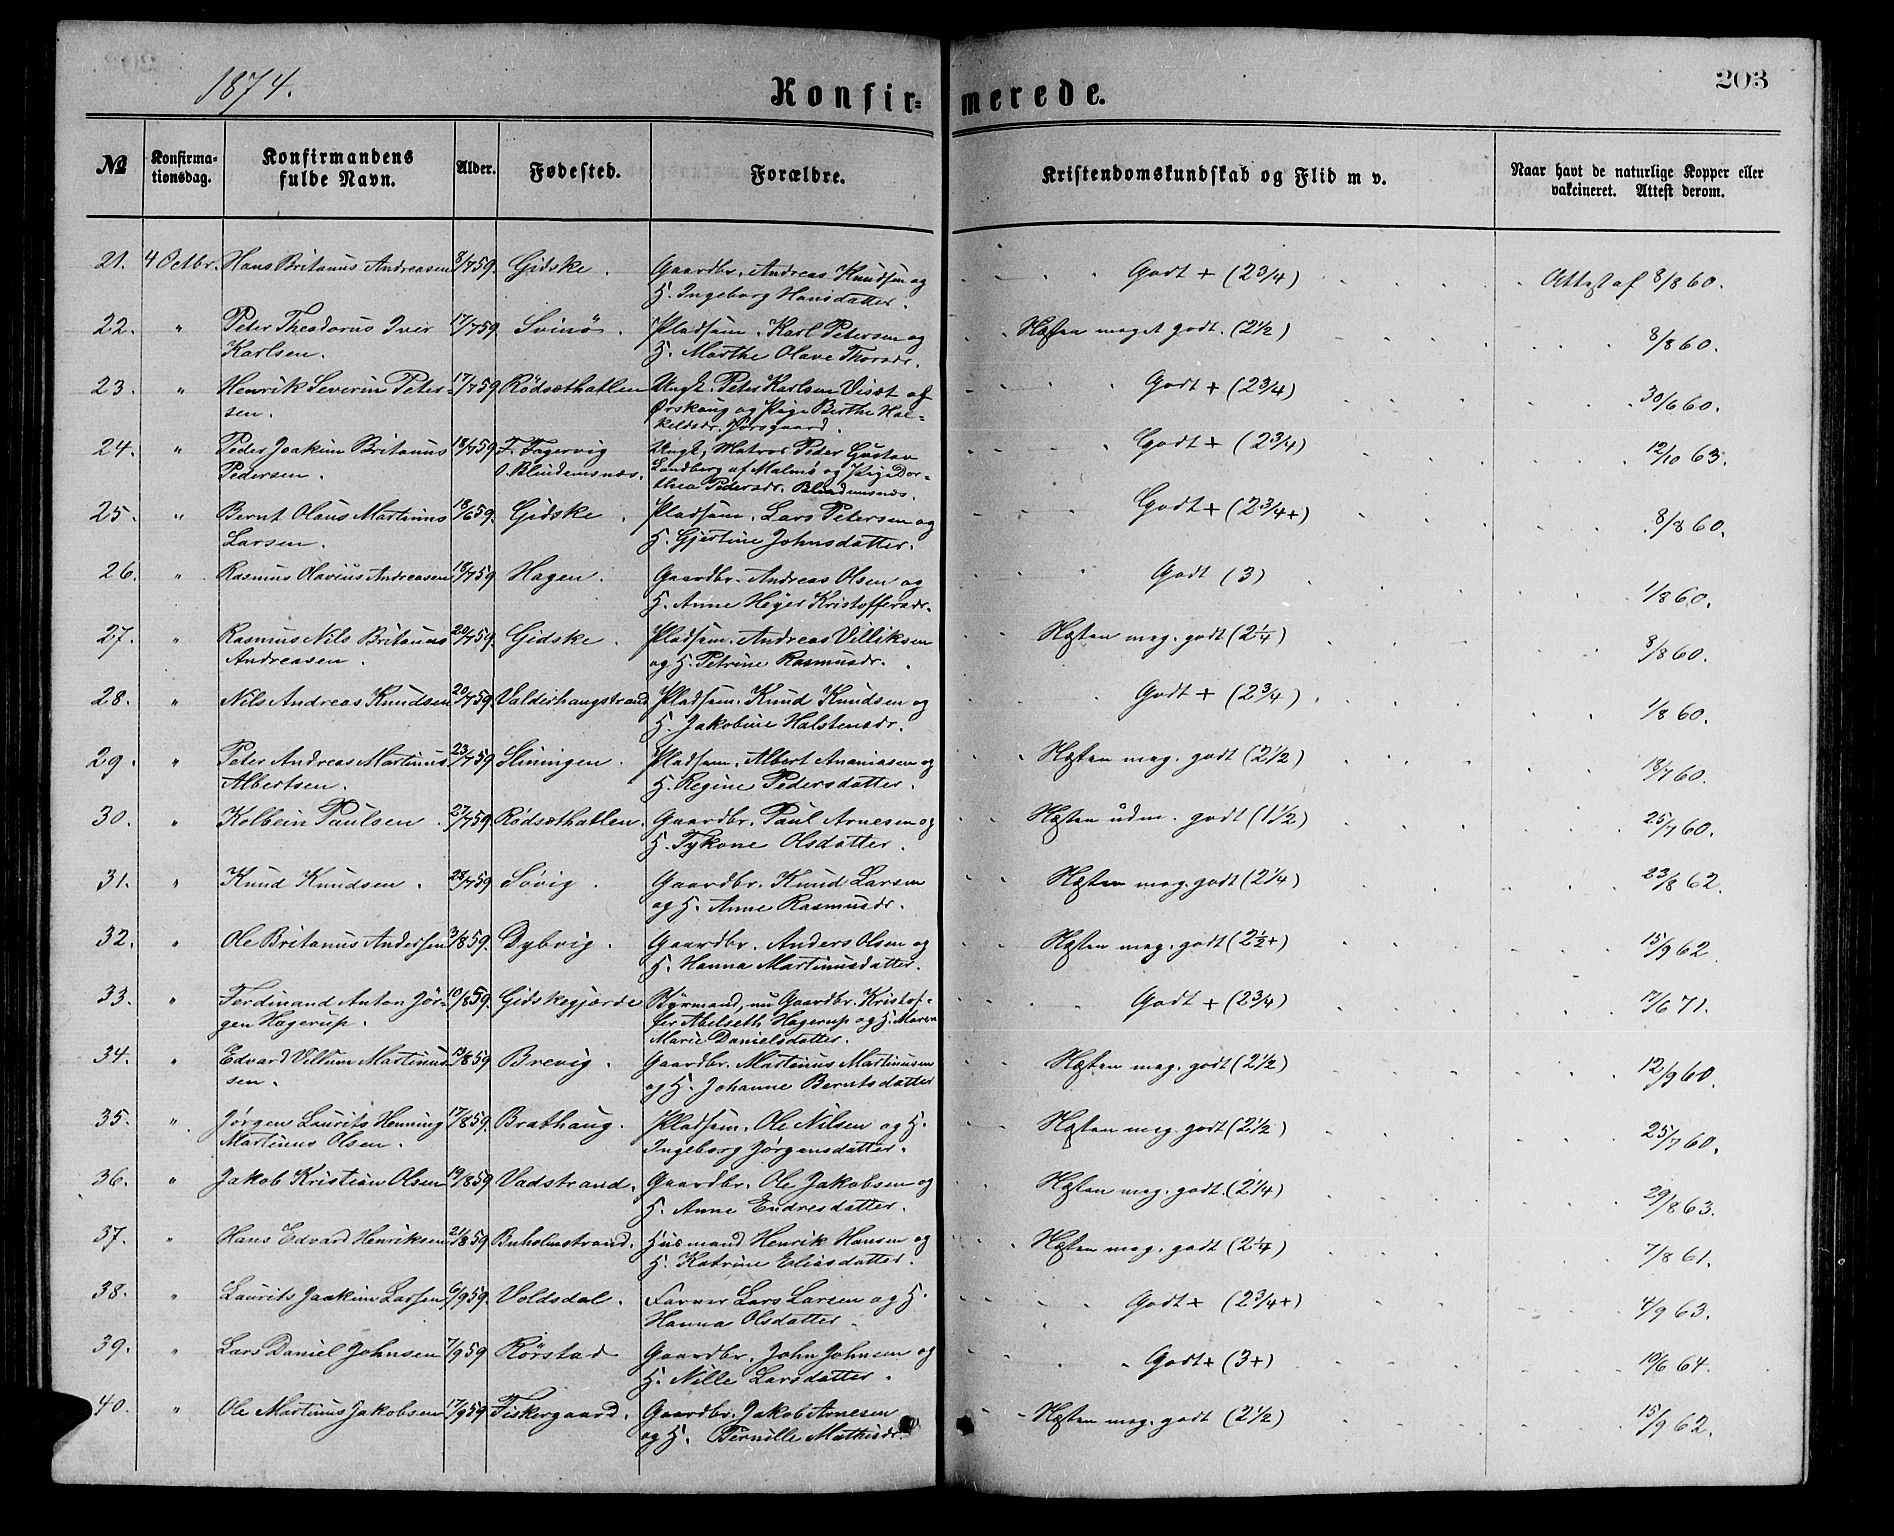 1874.
Konfirmerede.
203
№
Konfirma-
tionsdag.
Konfirmandens
fulde Navn.
Alder.
Fødested.
Forældre.
Kristendomskundskab og Flid m v.
Naar havt de naturlige Kopper eller
vakcineret. Attest derom.
21. 4 Octbr. Hans Britanus Andreasen 8/7 59. Gidske. Gaardbr. Andreas Knudsen og Godt + (2 3/4) Attest af 8/8 60.
H. Ingeborg Hansdatter.
22. " Peter Theodorus Iver 17/7 59. Svinø. Pladsem. Karl Petersen og Næsten meget godt. (2 1/2) 8/8 60.
Karlsen. H. Marthe Olave Thorsdr.
23. " Henrik Severin Peter- 17/7 59 Rødsæthatlen Ungk. Peter Karlsen Visæt af Godt + (2 3/4) 30/6 60.
sen. Ørskoug og Pige Berthe Hal-
keldsdr. Jørsgaard.
24. " Peder Joakim Britanus 18/7 59 F. Fagervig Ungk, Matros Peder Gustav Godt + (2 3/4) 12/10 63.
Pedersen. O. Blindemsnæs. Landberg af Malmø og Pige Dor-
thea Pedersdr. Blindemsnæs.
25. " Bernt Olaus Martinus 18/6 59. Gidske. Pladsem. Lars Petersen og Godt + (2 3/4+) 8/8 60.
Larsen. H. Gjertine Johnsdatter.
26. " Rasmus Olavius Andreasen 18/7 59 Hagen. Gaardbr. Andreas Olsen og Godt (3) 1/8 60.
H. Anne Heyer Kristoffersdr.
27. " Rasmus Nils Britanus 20/7 59. Gidske. Pladsem. Andreas Villiksen Næsten meg. godt (2 1/4) 8/8 60.
Andreasen. og H. Petrine Rasmusdr.
28. " Nils Andreas Knudsen 20/7 59. Valderhaugstrand Pladsem. Knud Knudsen og Godt + (2 3/4) 1/8 60.
H. Jakobine Halstensdr.
29. " Peter Andreas Martinus 23/7 59 Slinningen. Pladsem. Albert Ananiasen og Næsten meg. godt (2 1/2) 18/7 60.
Albertsen. H. Regine Pedersdatter.
30. " Kolbein Paulsen. 27/7 59. Rødsæthatlen. Gaardbr. Paul Arnesen og Næsten udm. godt (1 1/2) 25/7 60.
H. Tykone Olsdatter.
31. " Knud Knudsen. 28/7 59 Søvig. Gaardbr. Knud Larsen Næsten meg. godt (2 1/4) 23/8 62.
og H. Anne Rasmusdr.
32. " Ole Britanus Andersen 3/8 59. Dybvig. Gaardbr. Anders Olsen og Næsten meg. godt (2 1/2+) 15/9 62
H. Hanna Martinusdatter.
33. " Ferdinand Anton Jør- 10/8 59. Gidskegjerde Styrmand, nu Gaardbr. Kristof- Godt + (2 3/4) 17/6 71.
gen Hagerup. fer Abelseth Hagerup og H. Maren
Marie Danielsdatter.
34. " Edvard Villum Martinus- 13/8 59 Brevig. Gaardbr. Martinus Martinusen Næsten meg. godt (2 1/2) 12/9 60.
sen. og H. Johanne Berntsdatter
35. " Jørgen Laurits Henning 17/8 59. Brathaug. Pladsem. Ole Nilsen og H. Næsten meg. godt (2 1/2) 25/7 60.
Martinus Olsen. Ingeborg Jørgensdatter.
36. " Jakob Kristian Olsen 19/8 59 Vadstrand. Gaardbr. Ole Jakobsen og Næsten meg. godt (2 1/4) 29/8 63.
H. Anne Endresdatter.
37. " Hans Edvard Henriksen 21/8 59 Buholmstrand. Husmand Henrik Hansen og Næsten meg. godt (2 1/4) 7/8 61.
H. Katrine Eliasdatter.
38. " Laurits Joakim Larsen 6/9 59. Voldsdal. Farver Lars Larsen og H. Godt + (2 3/4+) 4/9 63.
Hanna Olsdatter.
39. " Lars Daniel Johnsen 7/9 59. Rørstad Gaardbr. John Johnsen og Godt + (3+) 10/6 64.
H. Nille Larsdatter.
40. " Ole Martinus Jakobsen 17/9 59 Fiskergaard. Gaardbr. Jakob Arnesen Næsten meg. godt (2 1/2) 15/9 62.
og H. Pernille Mathisdr.